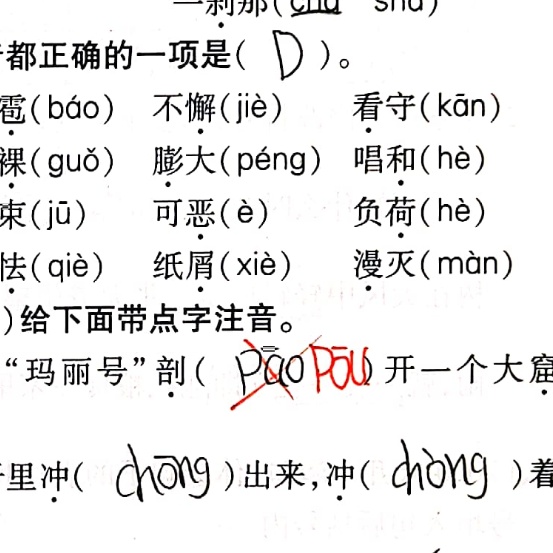 一刹那(chà shà)
都正确的一项是( D )。
雹(báo) 不懈(jiè) 看守(kān)
裸(guǒ) 膨大(péng) 唱和(hè)
束(jū) 可恶(è) 负荷(hè)
怯(qiè) 纸屑(xiè) 漫灭(màn)
)给下面带点字注音。
“玛丽号”剖( pāo pōu )开一个大窟
里冲( chōng )出来,冲( chòng )着